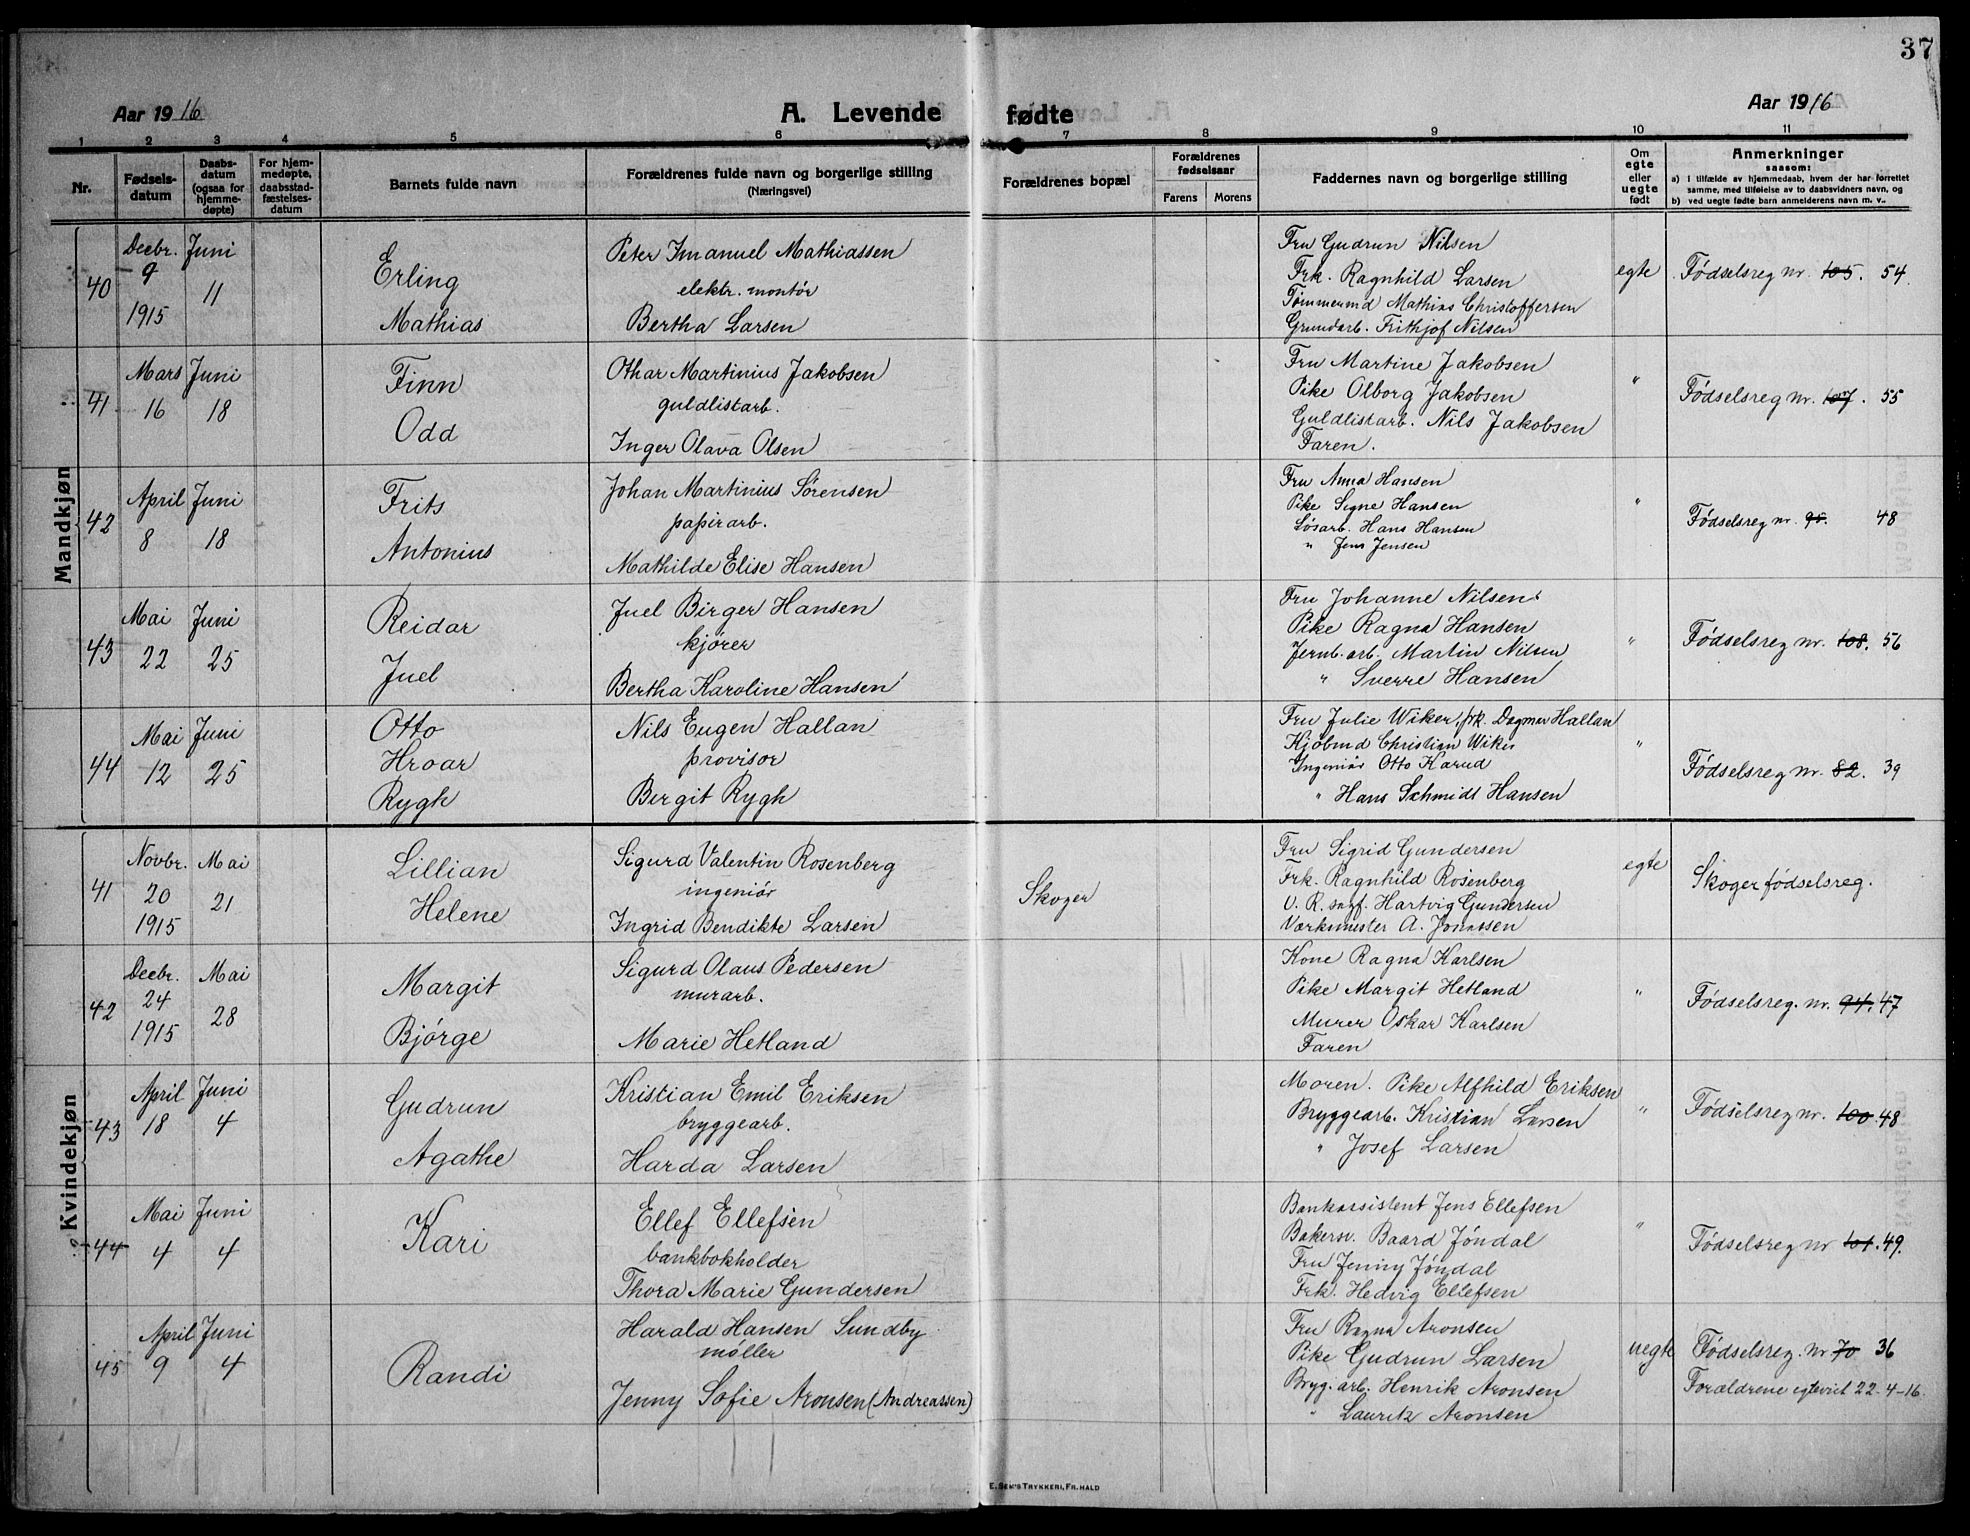 37
Aar 1916
A. Levende fødte
Aar 1916
1 2 3 4 5 6 7 8 9 10 11
Nr.
Fødsels-
datum
Daabs-
datum
(ogsaa for
hjemme-
døpte)
For hjem-
medøpte,
daabsstad-
fæstelses-
datum
Barnets fulde navn
Forældrenes fulde navn og borgerlige stilling
(Næringsvei)
Forældrenes bopæl
Forældrenes
fødselsaar
Farens Morens
Faddernes navn og borgerlige stilling
Om
egte
eller
uegte
født
Anmerkninger
saasom:
a) I tilfælde av hjemmedaab, hvem der har forrettet
samme, med tilføielse av to daabsvidners navn, og
b) ved uegte fødte barn anmelderens navn m. v..
Mandkjøn
40
Decbr. 9 1915
Juni 11
Erling
Mathias
Peter Imanuel Mathiassen
elektr. montör
Bertha Larsen
Fru Gudrun Nilsen
Frk. Ragnhild Larsen
Tømmermd Mathias Christoffersen
Grundarb. Frithjof Nilsen
egte
Fødselsreg nr. 105. 54.
41
Mars 16
Juni 18
Finn
Odd
Othar Martinius Jakobsen
guldlistarb.
Inger Olava Olsen
Fru Martine Jakobsen
Pike Olborg Jakobsen
Guldlistarb. Nils Jakobsen
Faren.
"
Fødselsreg nr. 107. 55
42
April 8
Juni 18
Frits
Antonius
Johan Martinius Sørensen
papirarb.
Mathilde Elise Hansen
Fru Anna Hansen
Pike Signe Hansen
Løsarb. Hans Hansen
" Jens Jensen
"
Fødselsreg nr. 95. 48
43
Mai 22
Juni 25
Reidar
Juel
Juel Birger Hansen
kjører
Bertha Karoline Hansen
Fru Johanne Nilsen
Pike Ragna Hansen
Jernb. arb. Martin Nilsen
" Sverre Hansen
"
Fødselsreg nr. 108. 56
44
Mai 12
Juni 25
Otto
Hroar
Rygh
Nils Eugen Hallan
provisor
Bergit Rygh
Fru Julie Wiker, frk. Dagmar Hallan
Kjøbmd Christian Wiker
Ingeniør Otto Karud
" Hans Schmidt Hansen
"
Fødselsreg nr. 82. 39
Kvindekjøn
41
Novbr. 20 1915
Mai 21
Lillian
Helene
Sigurd Valentin Rosenberg
ingeniör
Ingrid Bendikte Larsen
Skoger
Fru Sigrid Gundersen
Frk. Ragnhild Rosenberg
O. R. sagf. Hartvig Gundersen
Værkmester A. Jonassen
egte
Skoger fødselsreg.
42
Decbr. 24 1915
Mai 28
Margit
Bjørge
Sigurd Olaus Pedersen
murarb.
Marie Hetland
Kone Ragna Karlsen
Pike Margit Hetland
Murer Oskar Karlsen
Faren
"
Fødselsreg. nr. 94. 47
43
April 18
Juni 4
Gudrun
Agathe
Kristian Emil Eriksen
bryggearb.
Harda Larsen
Moren. Pike Alfhild Eriksen
Bryggearb. Kristian Larsen
" Josef Larsen
"
Fødselsreg nr. 100. 48
44
Mai 4
Juni 4
Kari
Ellef Ellefsen
bankbokholder
Thora Marie Gundersen
Bankassistent Jens Ellefsen
Bakersv. Baard Jøndal
Fru Jenny Jøndal
Frk. Hedvig Ellefsen
"
Fødselsreg nr 101. 49.
45
April 9
Juni 4
Randi
Harald Hansen Sundby
møller
Jenny Sofie Aronsen (Andreassen)
Fru Ragna Aronsen
Pike Gudrun Larsen
Bryg. arb. Henrik Aronsen
" Lauritz Aronsen
uegte
Fødselsreg. nr 70 36
Forældrene egteviet 22-4-16.
E. Sem's Trykkeri, Fr.hald